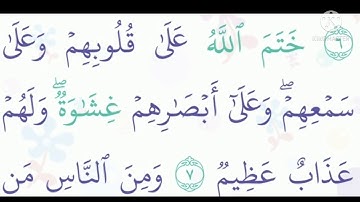 ٦ خَتَمَ ٱللَّهُ عَلَىٰ قُلُوبِهِمْ وَعَلَىٰ
سَمْعِهِمْ ۖ وَعَلَىٰٓ أَبْصَـٰرِهِمْ غِشَـٰوَةٌ ۖ وَلَهُمْ
عَذَابٌ عَظِيمٌ ٧ وَمِنَ ٱلنَّاسِ مَن